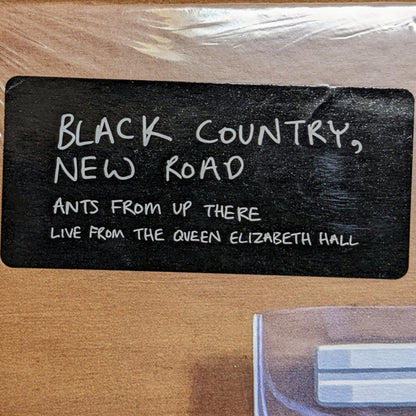 BLACK COUNTRY,
NEW ROAD
ANTS FROM UP THERE
LIVE FROM THE QUEEN ELIZABETH HALL